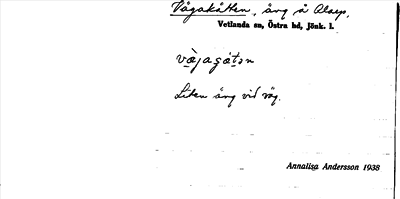 Vågakåtten, äng å Alsep.
Vetlanda sn, Östra hd, Jönk. l.
Liten äng vid väg.
Annalisa Andersson 1938